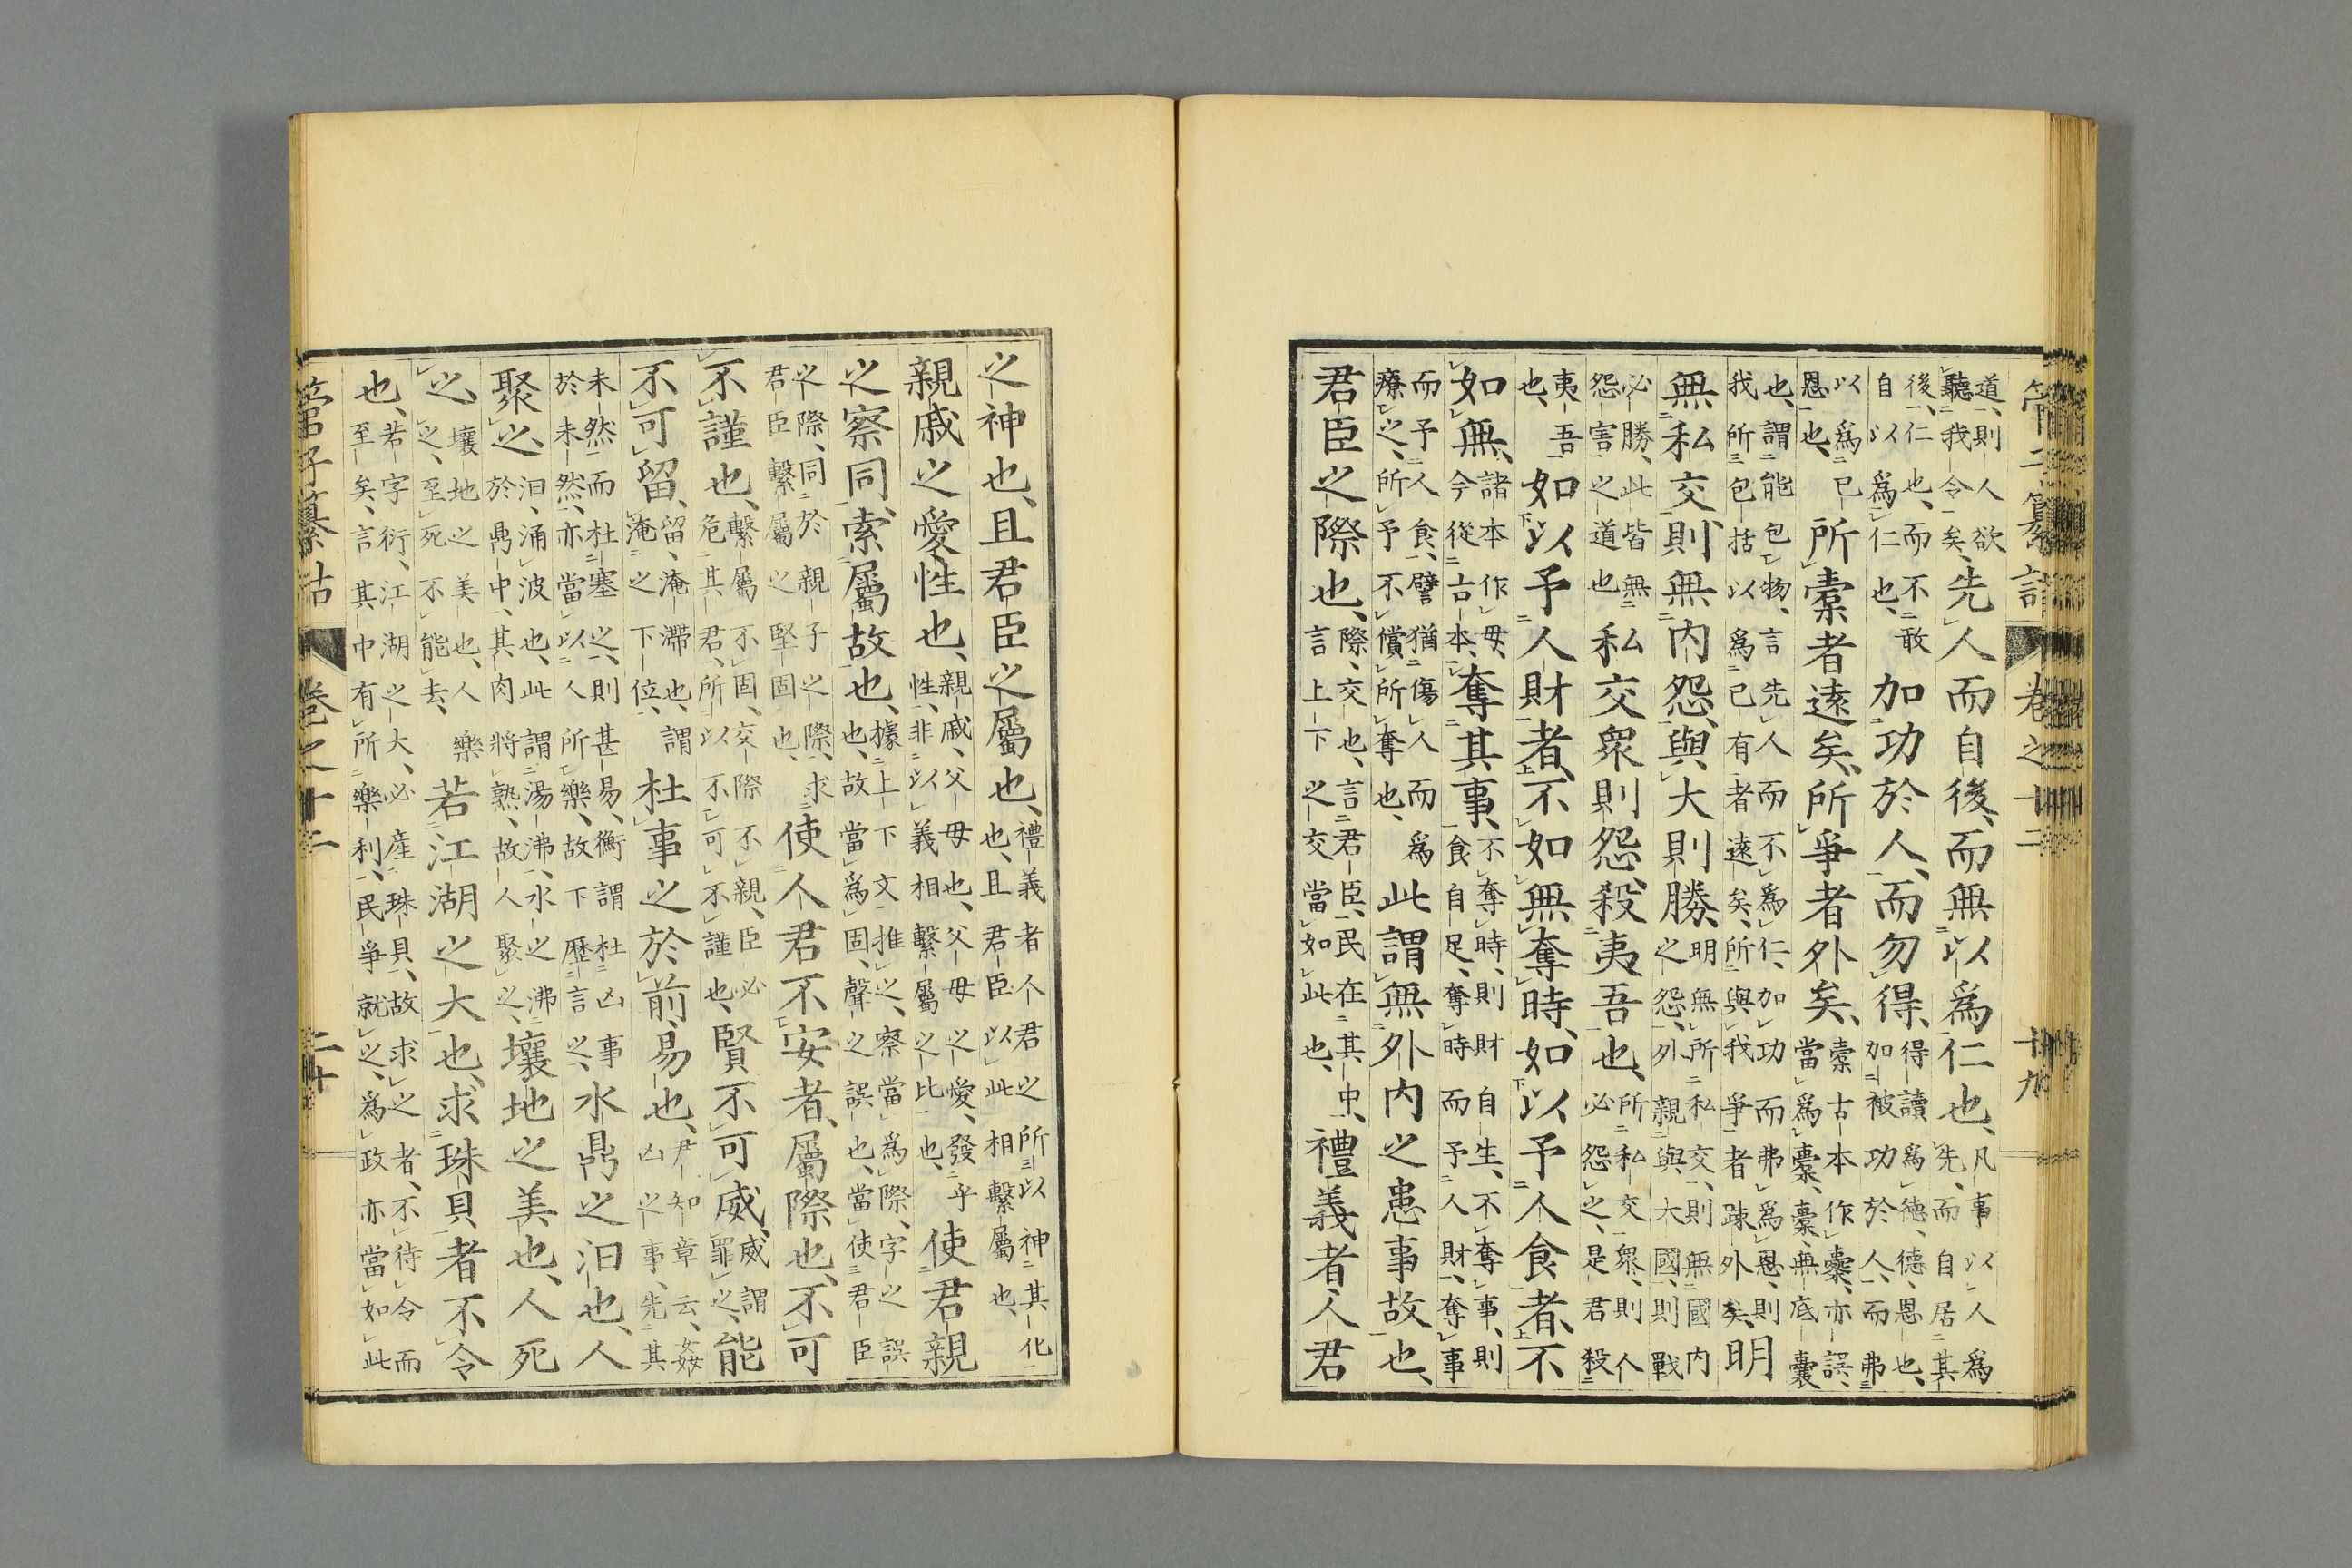 管子纂詁 卷之十二 十九
道、則人欲聽我令矣、先人而自後、而無以爲仁也、凡事以人爲先、而自居其
後、仁也、而不敢自以爲仁也、加功於人、而勿得、得讀爲德、德恩也、加被功於人、而弗
以爲己恩也、所橐者遠矣、所爭者外矣、橐古本作櫜、亦誤、當爲橐、橐無底囊
也、謂能包物、言先人而不爲仁、加功而弗爲恩、則我所包括以爲己有者遠矣、所與我爭者踈外矣、明
無私交、則無内怨、與大則勝、明無所私交、則無國内之怨、外親與大國、則戰
必勝、此皆無怨害之道也私交衆則怨、殺夷吾也、所私交衆、則人必怨之、是君殺
夷吾也、如以予人財者、不如無奪時、如以予人食者、不
如無、諸本作毋、今從古本、奪其事、不奪時、則財自生、不奪事、則食自足、奪時而予人財、奪事
而予人食、譬猶傷人而爲療之、所予不償所奪也、此謂無外内之患事故也、
君臣之際也、際、交也、言君臣、民在其中、言上下之交當如此也、禮義者、人君
之神也、且君臣之屬也、禮義者人君之所以神其化也、且君臣以此相繫屬也、
親戚之愛性也、親戚、父母也、父母之愛、發乎性、非以義相繫屬之比也、使君親
之察同、索屬故也、據上下文推之、察當爲際、字之誤也、故當爲固、聲之誤也、當使君臣
之際、同於親子之際、求君臣繫屬之堅固也、使人君不安者、屬際也、不可
不謹也、繫屬不固、交際不親、臣必危其君、所以不可不謹也、賢不可威、威謂罪之、能
不可留、留、淹滯也、謂淹之下位、杜事之於前、易也、君知章云、姦凶之事、先其
未然而杜塞之、則甚易、衡謂杜凶事於未然、亦當以人所樂、故下歷言之、水鼎之汨也、人
聚之、汨、涌波也、此謂湯沸、水之沸於鼎中、其肉將熟、故人聚之、壤地之美也、人死
之、壤地之美也、人樂之、至死不能去、若江湖之大也、求珠貝者不令
也、若字衍、江湖之大、必産珠貝、故求之者、不待令而至矣、言其中有所樂利、民爭就之、爲政亦當如此
管子纂詁 卷之十二 二十